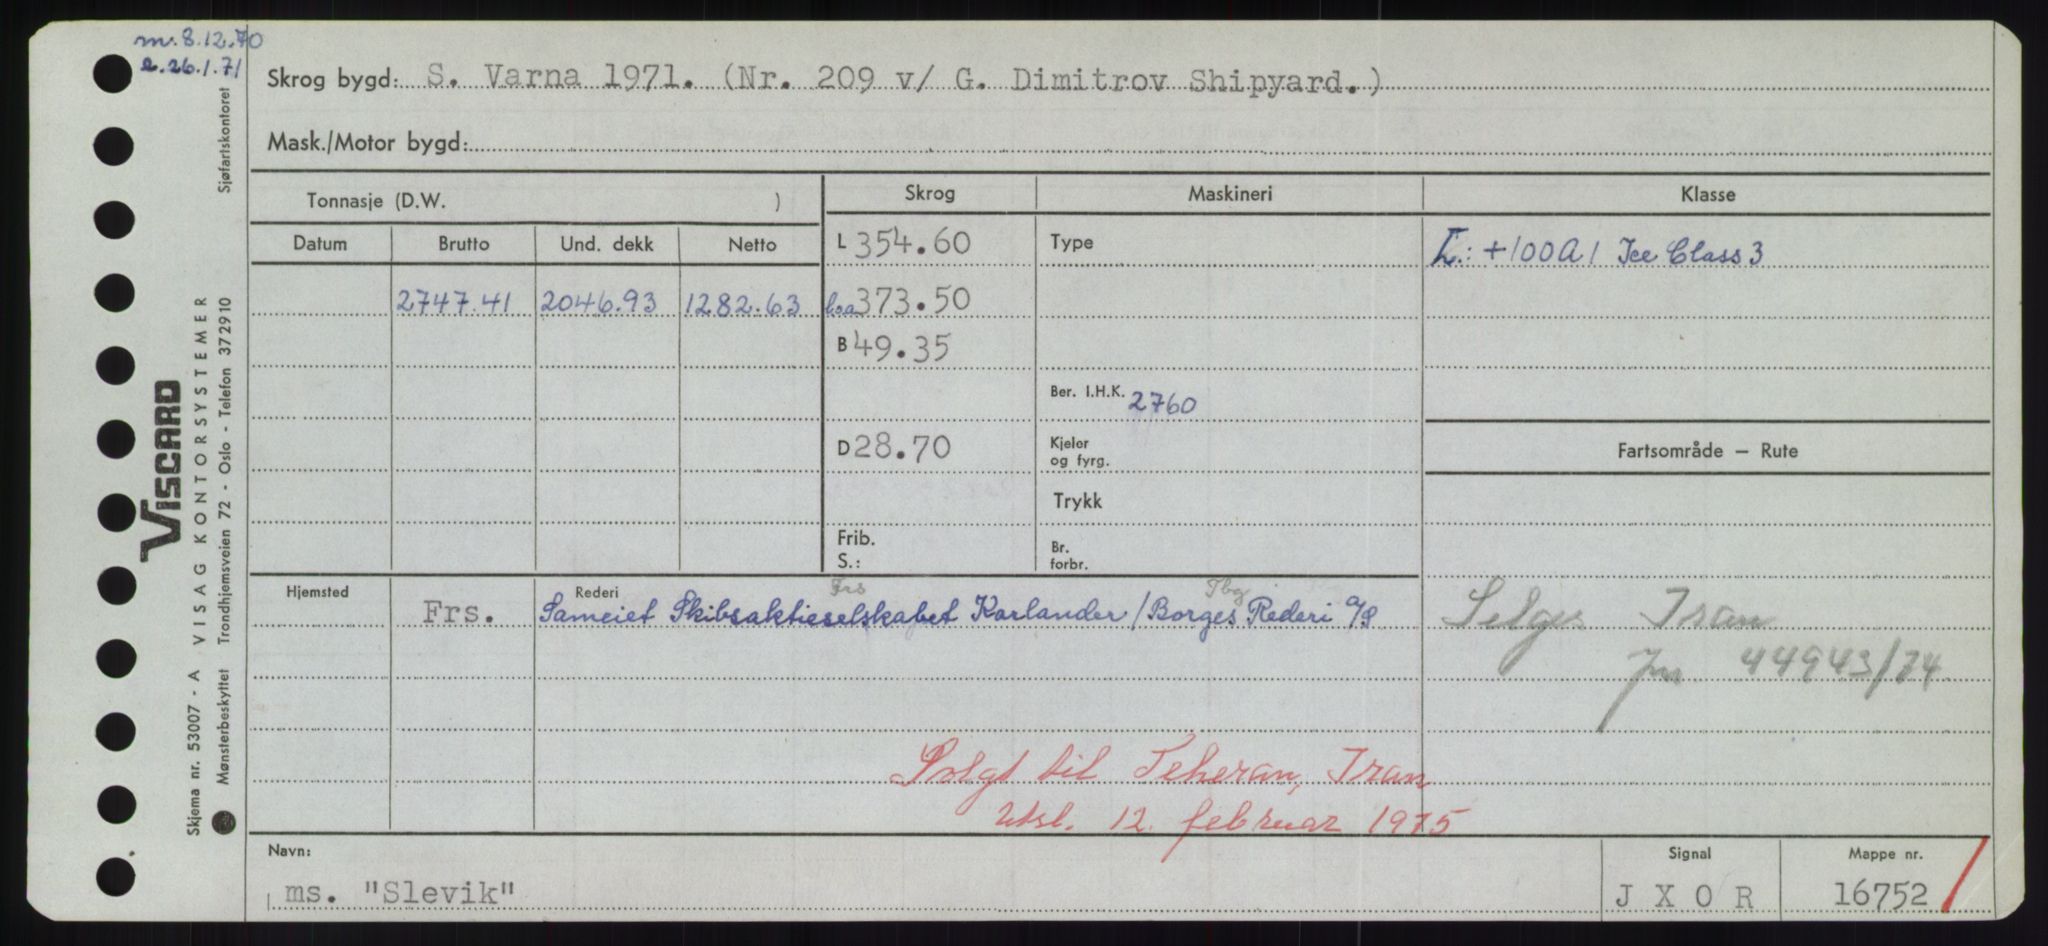 m. 8.12.70
e. 26.1.71
Skrog bygd: S. Varna 1971. (Nr. 209 v/ G. Dimitrov Shipyard.)
Mask./Motor bygd:
Tonnasje (D.W. )
Skrog
Maskineri
Klasse
Datum
Brutto
Und. dekk
Netto
L 354.60
Type
L: +100A1 Ice Class 3
2747.41
2046.93
1282.63
loa 373.50
B 49.35
Ber. I.H.K. 2760
D 28.70
Kjeler
og fyrg.
Fartsområde — Rute
Trykk
Frib.
S.:
Br.
forbr.
Hjemsted
Rederi
Frs
Tbg
Frs.
Sameiet Skibsaktieselskabet Karlander / Borges Rederi A/S
Selges Iran
Jnr 44943/74
Solgt til Teheran, Iran
Utsl. 12. februar 1975
Navn:
Signal
Mappe nr.
ms. "Slevik"
J X O R
16752
VISCARD
Skjema nr. 53007 - A VISAG KONTORSYSTEMER
Mønsterbeskyttet Trondhjemsveien 72 - Oslo - Telefon 372910 Sjøfartskontoret